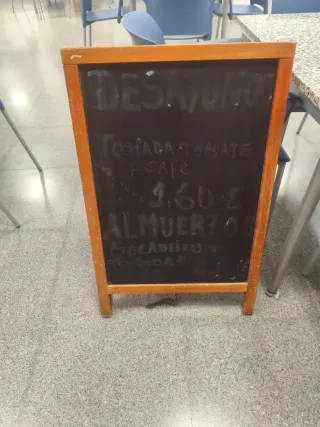 DESAYUNO
TOSTADA TOMATE
+ CAFE
1.60 €
ALMUERZOS
BOCADILLO